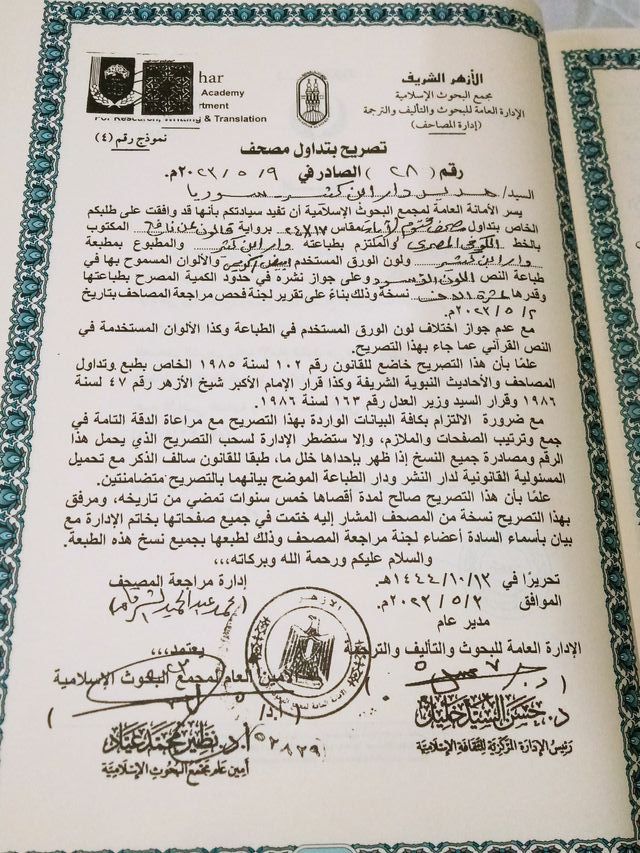 الأزهر الشريف
مجمع البحوث الإسلامية
الإدارة العامة للبحوث والتأليف والترجمة
(إدارة المصاحف)
har
Academy
rtment
For Research, Writing & Translation
نموذج رقم (٤)
تصريح بتداول مصحف
رقم (٢٨) الصادر في ٩/٥/٢٠٢٣م.
السيد/ مدير دار ابن كثير سوريا
يسر الأمانة العامة لمجمع البحوث الإسلامية أن تفيد سيادتكم بأنها قد وافقت على طلبكم
الخاص بتداول مصحف مقاس ١٧×٢٤ برواية قالون عن نافع المكتوب
بالخط الكوفي المصري والملتزم بطباعته دار ابن كثير والمطبوع بمطبعة
دار ابن كثير ولون الورق المستخدم أبيض والألوان المسموح بها في
طباعة النص اللون الأسود وعلى جواز نشره في حدود الكمية المصرح بطباعتها
وقدرها عشرة آلاف نسخة وذلك بناءً على تقرير لجنة فحص مراجعة المصاحف بتاريخ
٢/٥/٢٠٢٣م.
مع عدم جواز اختلاف لون الورق المستخدم في الطباعة وكذا الألوان المستخدمة في
النص القرآني عما جاء بهذا التصريح.
علمًا بأن هذا التصريح خاضع للقانون رقم ١٠٢ لسنة ١٩٨٥ الخاص بطبع وتداول
المصاحف والأحاديث النبوية الشريفة وكذا قرار الإمام الأكبر شيخ الأزهر رقم ٤٧ لسنة
١٩٨٦ وقرار السيد وزير العدل رقم ١٦٣ لسنة ١٩٨٦.
مع ضرورة الالتزام بكافة البيانات الواردة بهذا التصريح مع مراعاة الدقة التامة في
جمع وترتيب الصفحات والملازم، وإلا ستضطر الإدارة لسحب التصريح الذي يحمل هذا
الرقم ومصادرة جميع النسخ إذا ظهر بإحداها خلل ما، طبقا للقانون سالف الذكر مع تحميل
المسئولية القانونية لدار النشر ودار الطباعة الموضح بيانهما بالتصريح متضامنتين.
علمًا بأن هذا التصريح صالح لمدة أقصاها خمس سنوات تمضي من تاريخه، ومرفق
بهذا التصريح نسخة من المصحف المشار إليه ختمت في جميع صفحاتها بخاتم الإدارة مع
بيان بأسماء السادة أعضاء لجنة مراجعة المصحف وذلك لطبعها بجميع نسخ هذه الطبعة.
والسلام عليكم ورحمة الله وبركاته،،،
تحريرًا في ١٣/١٠/١٤٤٤هـ.
الموافق ٣/٥/٢٠٢٣م.
إدارة مراجعة المصحف
مدير عام
الإدارة العامة للبحوث والتأليف والترجمة
يعتمد،،،
الأمين العام لمجمع البحوث الإسلامية
الأزهر
د. حسن السيد خليل
رئيس الإدارة المركزية للثقافة الإسلامية
(أ.د/ )
٥٢٨٢٩
أ.د. نظير محمد عياد
أمين عام مجمع البحوث الإسلامية